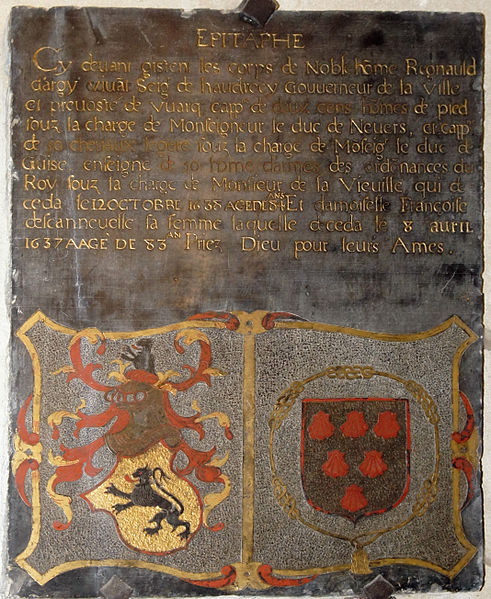 EPITAPHE
Cy deuant gisten les corps de Noble hõme Regnauld
dargy viuãt Seig de haudrecy Gouuerneur de la Ville
et preuoste de Vuarq cap^e de deux cens hõmes de pied
souz la charge de Monseigneur le duc de Neuers, et cap
de 50 cheuaux legers souz la charge de Mõseig^r le duc de
Guise enseigne de 50 hõme darmes des ordõnances du
Roy souz la charge de Monsieur de la Vieuille qui de
ceda le 12 OCTOBRE 1638 AGE DE Et damoiselle Francoise
descanneuelle sa femme laquelle deceda le 8 auril
1637 AAGE DE 83 AN Priez Dieu pour leurs Ames.